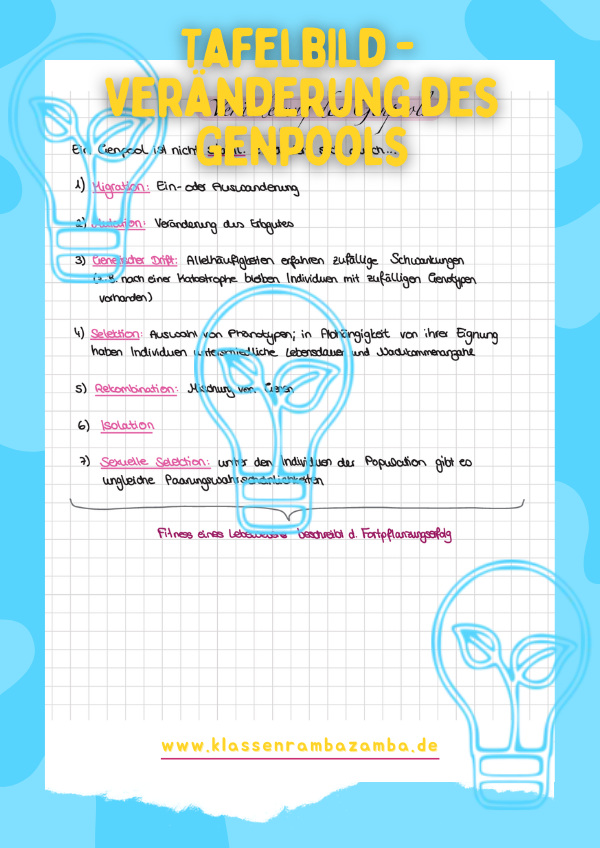 TAFELBILD -
VERÄNDERUNG DES
GENPOOLS
Ein Genpool ist nicht
1) Migration: Ein- oder Auswanderung
2) Mutation: Veränderung des Erbgutes
3) Genetischer Drift: Allelhäufigkeiten erfahren zufällige Schwankungen
(z.B. nach einer Katastrophe bleiben Individuen mit zufälligen Genotypen
vorhanden)
4) Selektion: Auswahl von Phänotypen; in Abhängigkeit von ihrer Eignung
haben Individuen unterschiedliche Lebensdauer und Nachkommenangabe
5) Rekombination: Mischung von Genen
6) Isolation
7) Sexuelle Selection: unter den Individuen der Population gibt es
ungleiche Paarungswahrscheinlichkeiten
Fitness eines Lebewesens beschreibt d. Fortpflanzungserfolg
www.klassenrambazamba.de